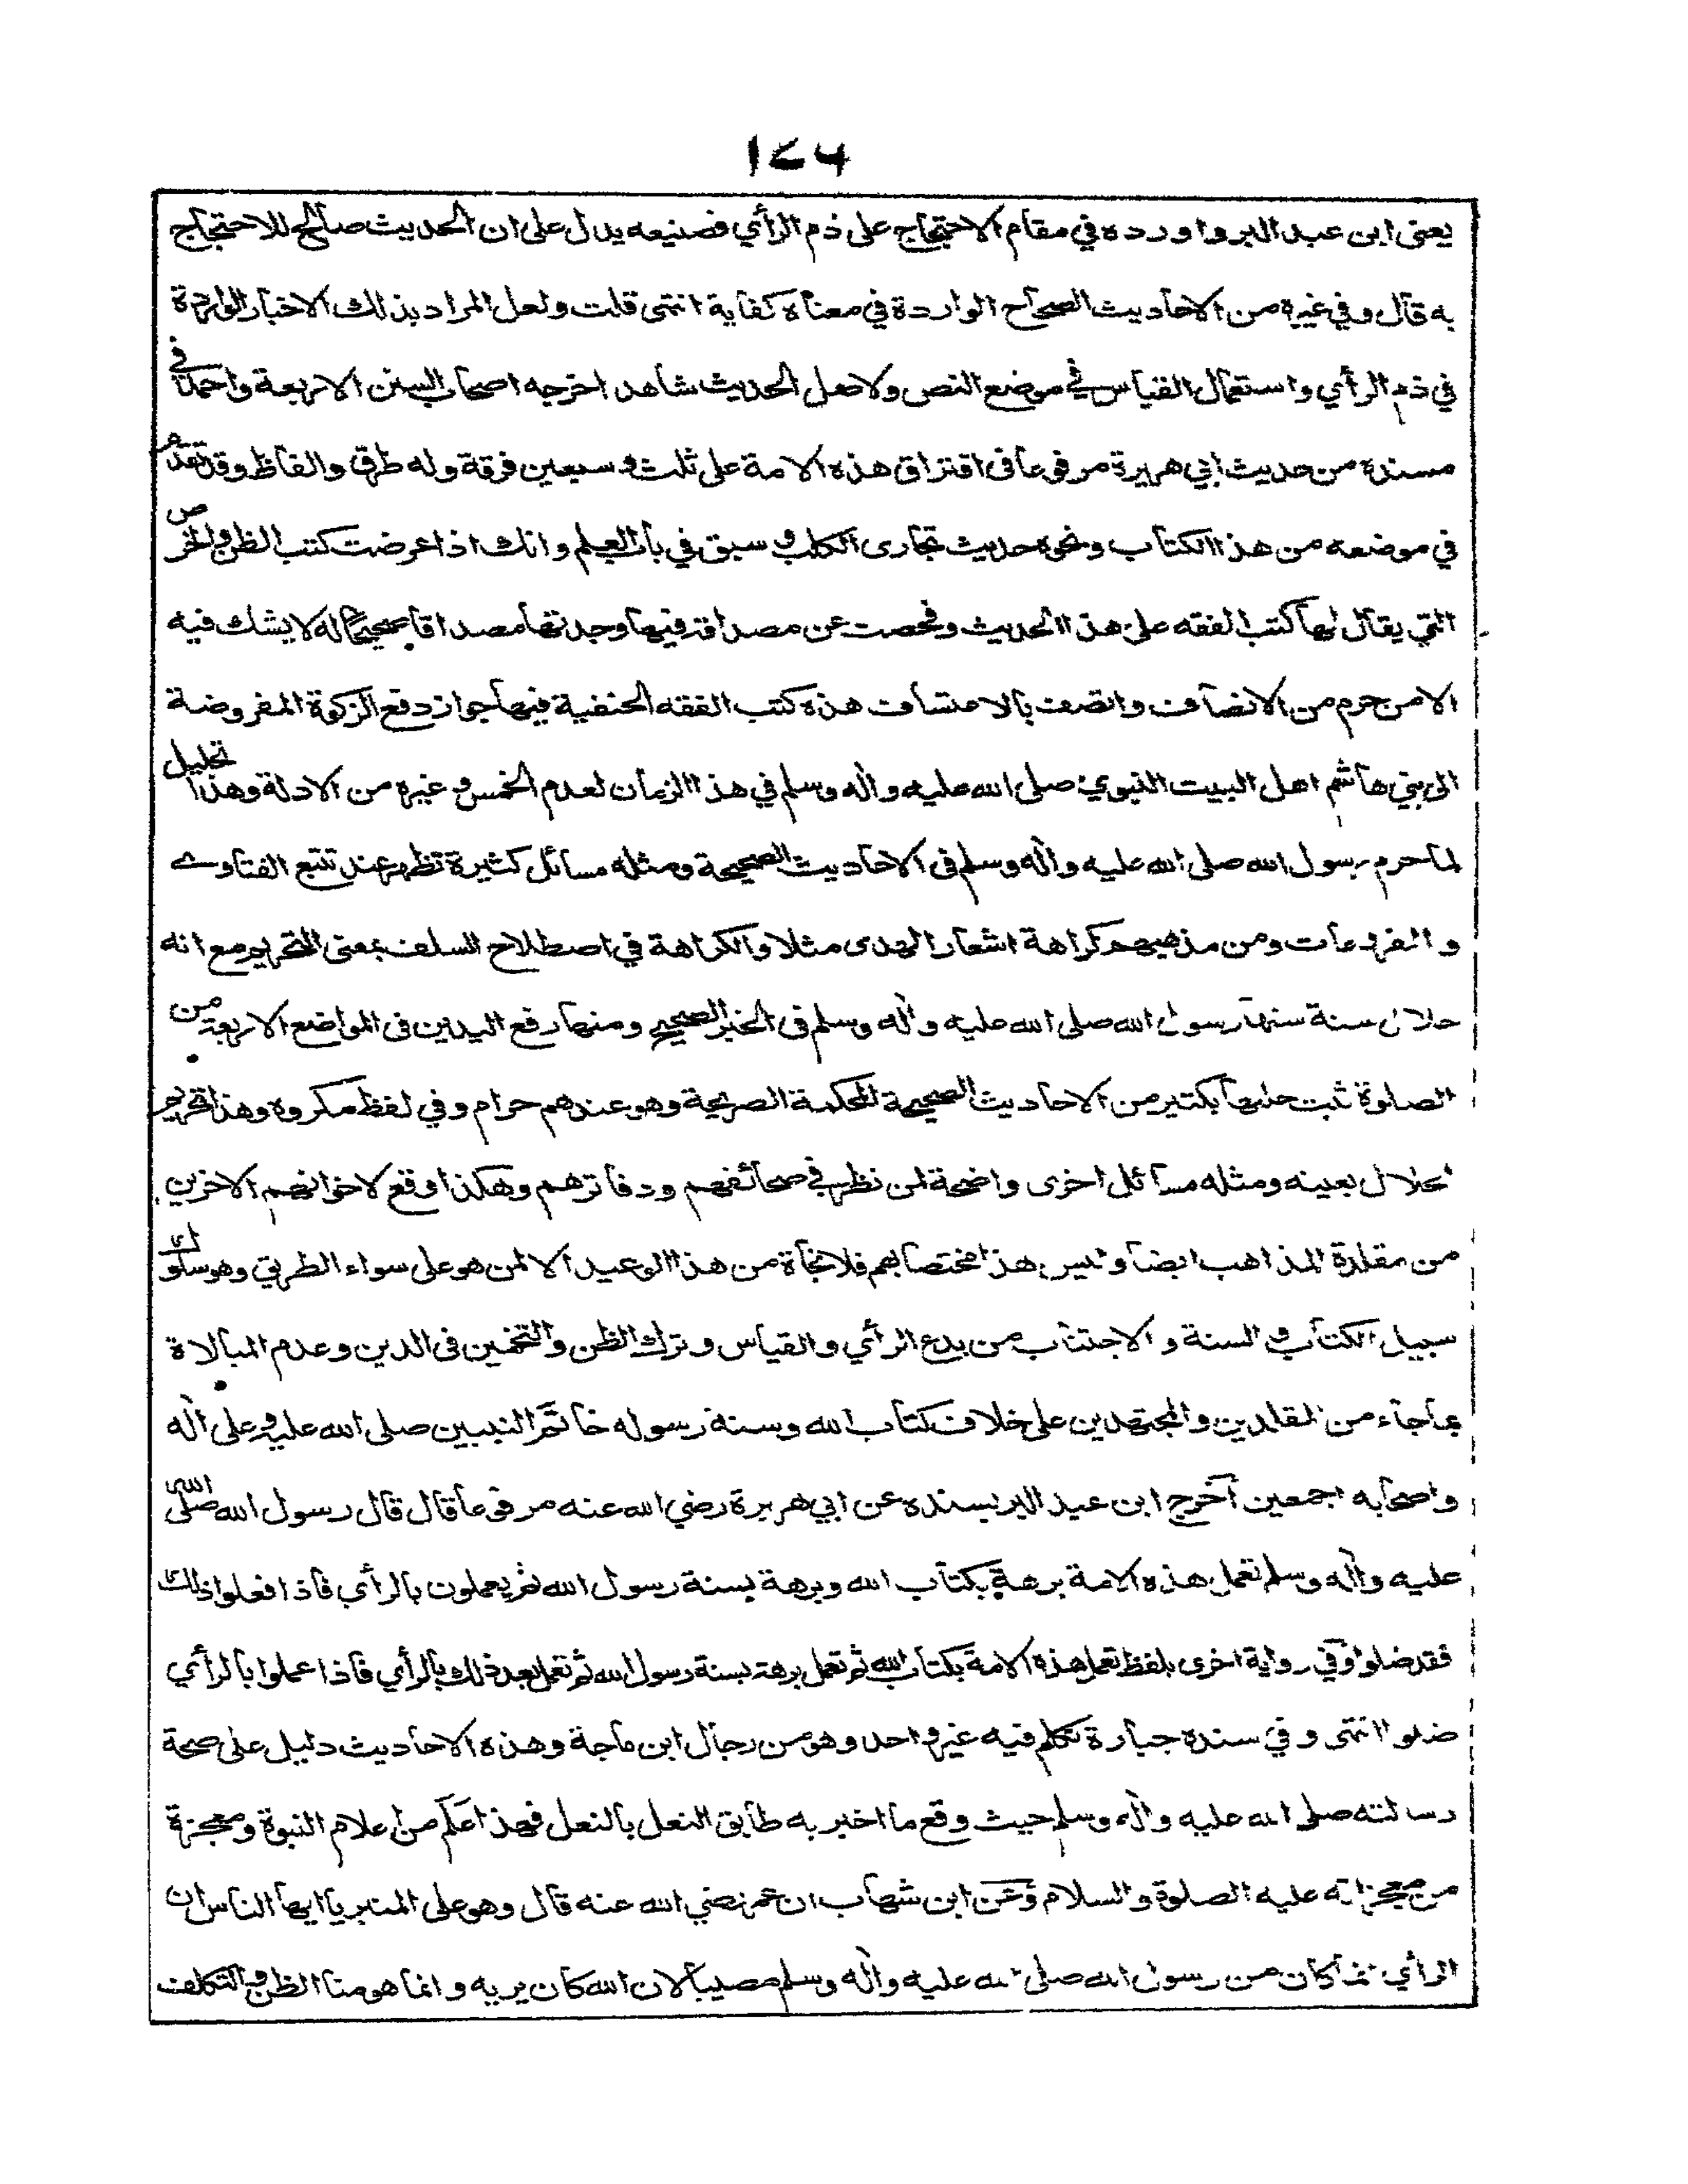 ١٤٦
يعنى ابن عبد البر واورده في مقام الاحتجاج على ذم الرأي فصنيعه يدل على ان الحديث صالح للاحتجاج
به قال وفي غيره من الاحاديث الصحاح الواردة في معناه كفاية انتهى قلت ولعل المراد بذلك الاخبار الواردة
في ذم الرأي واستعمال القياس في موضع النص ولاصل الحديث شاهد اخرجه اصحاب السنن الاربعة واحمد في
مسنده من حديث ابي هريرة مرفوعا في افتراق هذه الامة على ثلث وسبعين فرقة وله طرق والفاظ وقد تقدم
في موضعه من هذا الكتاب ونحوه حديث تجارى الكلب وسبق في باب العلم وانك اذا عرضت كتب الظن والخرص
التي يقال لها كتب الفقه على هذا الحديث وفحصت عن مصداقه فيها وجدتها مصداقا صحيحا له لا يشك فيه
الا من حرم من الانصاف واتصف بالاعتساف هذه كتب الفقه الحنفية فيها جواز دفع الزكوة المفروضة
الى بني هاشم اهل البيت النبوي صلى الله عليه واٰله وسلم في هذا الزمان لعدم الخمس وغيره من الادلة وهذا تحليل
لما حرم رسول الله صلى الله عليه واٰله وسلم فى الاحاديث الصحيحة ومثله مسائل كثيرة تظهر عند تتبع الفتاوے
والفروعات ومن مذهبهم كراهة اشعار الهدى مثلا والكراهة في اصطلاح السلف بمعنى التحريم مع انه
حلال سنة سنها رسول الله صلى الله عليه واٰله وسلم فى الخبر الصحيح ومنها رفع اليدين فى المواضع الاربعة من
الصلوة ثبت حلها بكثير من الاحاديث الصحيحة المحكمة الصريحة وهو عندهم حرام وفي لفظ مكروه وهذا تحريم
الحلال بعينه ومثله مسائل اخرى واضحة لمن نظر في صحائفهم ودفاترهم وهكذا وقع لاخوانهم الاخرين
من مقلدة المذاهب ايضا وليس هذا مختصا بهم فلا نجاة من هذا الوعيد الا لمن هو على سواء الطريق وهو سلوك
سبيل الكتاب والسنة والاجتناب من بدع الرأي والقياس وترك الظن والتخمين فى الدين وعدم المبالاة
بما جاء من المقلدين والمجتهدين على خلاف كتاب الله وسنة رسوله خاتم النبيين صلى الله عليه وعلى اٰله
واصحابه اجمعين اخرج ابن عبد البر بسنده عن ابي هريرة رضي الله عنه مرفوعا قال قال رسول الله صلى الله
عليه واٰله وسلم تعمل هذه الامة برهة بكتاب الله وبرهة بسنة رسول الله ثم يعملون بالرأي فاذا فعلوا ذلك
فقد ضلوا وفي رواية اخرى بلفظ تعمل هذه الامة بكتاب الله ثم تعمل برهة بسنة رسول الله ثم تعمل بعد ذلك بالرأي فاذا عملوا بالرأي
ضلوا انتهى وفي سنده جبارة تكلم فيه غير واحد وهو من رجال ابن ماجة وهذه الاحاديث دليل على صحة
رسالته صلى الله عليه واٰله وسلم حيث وقع ما اخبر به طابق النعل بالنعل فهذا علم من اعلام النبوة ومعجزة
من معجزاته عليه الصلوة والسلام وعن ابن شهاب ان عمر رضي الله عنه قال وهو على المنبر يا ايها الناس ان
الرأي انما كان من رسول الله صلى الله عليه واٰله وسلم مصيبا لان الله كان يريه وانما هو منا الظن والتكلف